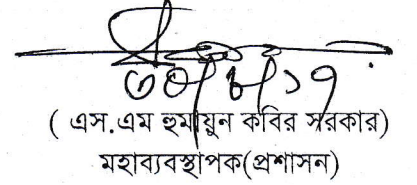 ( এস.এম হুমায়ুন কবির সরকার)
মহাব্যবস্থাপক(প্রশাসন)